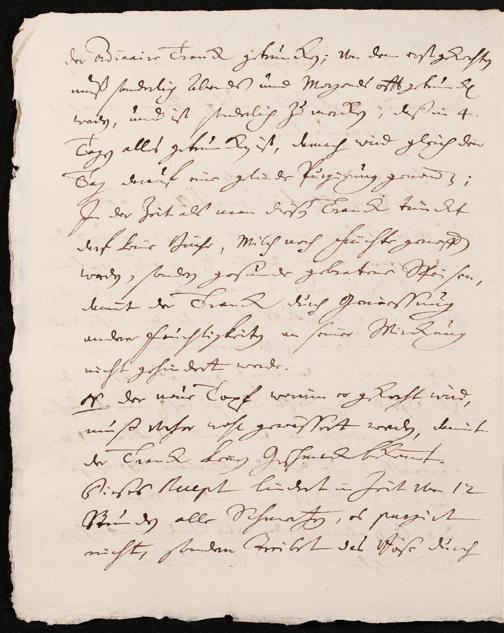 der ordinaire Tranck getruncken; von dem erst gekochten
muß sonderlich Abends und Morgends getruncken
werden, und ist sonderlich zu mercken, daß in 4.
Tagen alles getruncken ist, darnach wird gleich den
Tag darauf eine gelinde Purgirung genommen;
In der Zeit als man diesen Tranck trincket
darf keine Milch noch früchte genossen
werden, sondern gesunde gebratene Speisen,
damit der Tranck durch Geniessung
anderer feuchtigkeiten an seiner Würckung
nicht gehindert werde.
NB der neue Topf worinn es gekocht wird,
muß vorher wohl gewässert werden, damit
der Tranck keinen Geschmack bekomt.
Dieses Recept lindert in Zeit von 12
Stunden alle Schmertzen, es purgirt
nicht, sondern treibet das Böse durch